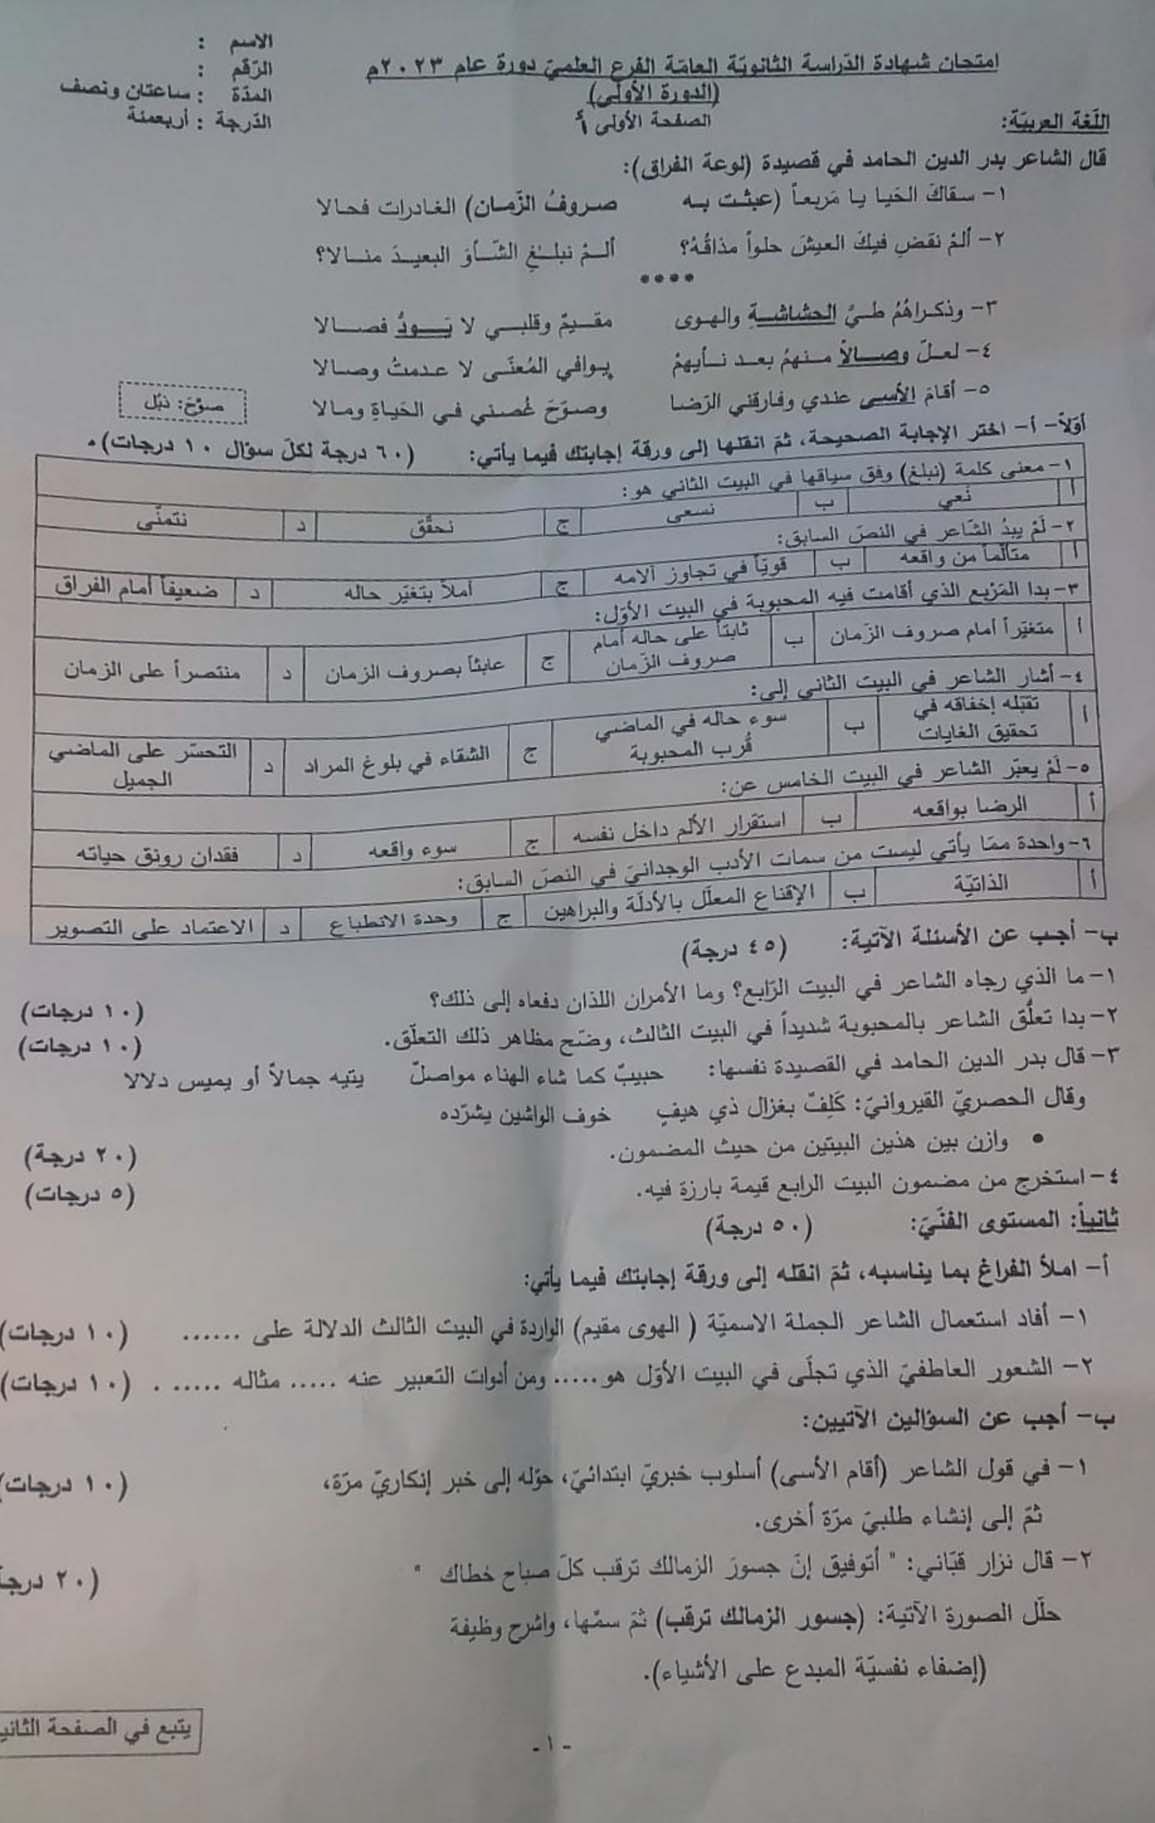 الاسم :
الرّقم :
المدّة : ساعتان ونصف
الدّرجة : أربعمئة
امتحان شهادة الدّراسة الثانويّة العامّة الفرع العلميّ دورة عام ٢٠٢٣م
(الدورة الأولى)
اللّغة العربيّة: الصفحة الأولى أ
قال الشاعر بدر الدين الحامد في قصيدة (لوعة الفراق):
١- سقاك الحَيا يا مَربعاً (عبثت به صروفُ الزّمان) الغادرات فحالا
٢- ألمْ نقضِ فيكَ العيشَ حلواً مذاقُهُ؟ ألمْ نبلغِ الشّأوَ البعيدَ منالا؟
****
٣- وذكراهُمُ طيَّ الحشاشةِ والهوى مقيمٌ وقلبي لا يَودُّ فصالا
٤- لعلّ وصالاً منهمُ بعد نأيهمْ يوافي المُعنّى لا عدمتُ وصالا
٥- أقامَ الأسى عندي وفارقني الرّضا وصوّحَ غُصني في الحَياةِ ومالا
صوّحَ: ذبُل
أوّلاً- أ- اختر الإجابة الصحيحة، ثمّ انقلها إلى ورقة إجابتك فيما يأتي: (٦٠ درجة لكلّ سؤال ١٠ درجات).
١- معنى كلمة (نبلغ) وفق سياقها في البيت الثاني هو:
أ نَعي ب نسعى ج نحقّق د نتمنّى
٢- لَمْ يبدُ الشّاعر في النصّ السابق:
أ متألّماً من واقعه ب قويّاً في تجاوز آلامه ج آملاً بتغيّر حاله د ضعيفاً أمام الفراق
٣- بدا المَرْبع الذي أقامت فيه المحبوبة في البيت الأوّل:
أ متغيّراً أمام صروف الزّمان ب ثابتاً على حاله أمام صروف الزّمان ج عابثاً بصروف الزمان د منتصراً على الزمان
٤- أشار الشاعر في البيت الثاني إلى:
أ تقبّله إخفاقه في تحقيق الغايات ب سوء حاله في الماضي قُرب المحبوبة ج الشقاء في بلوغ المراد د التحسّر على الماضي الجميل
٥- لَمْ يعبّر الشاعر في البيت الخامس عن:
أ الرضا بواقعه ب استقرار الألم داخل نفسه ج سوء واقعه د فقدان رونق حياته
٦- واحدة ممّا يأتي ليست من سمات الأدب الوجدانيّ في النصّ السابق:
أ الذاتيّة ب الإقناع المعلّل بالأدلّة والبراهين ج وحدة الانطباع د الاعتماد على التصوير
ب- أجب عن الأسئلة الآتية: (٤٥ درجة)
١- ما الذي رجاه الشاعر في البيت الرّابع؟ وما الأمران اللذان دفعاه إلى ذلك؟ (١٠ درجات)
٢- بدا تعلّق الشاعر بالمحبوبة شديداً في البيت الثالث، وضّح مظاهر ذلك التعلّق. (١٠ درجات)
٣- قال بدر الدين الحامد في القصيدة نفسها: حبيبٌ كما شاء الهناء مواصلٌ يتيه جمالاً أو يميس دلالا
وقال الحصريّ القيروانيّ: كَلِفٌ بغزال ذي هيفٍ خوف الواشين يشرّده
• وازن بين هذين البيتين من حيث المضمون. (٢٠ درجة)
٤- استخرج من مضمون البيت الرابع قيمة بارزة فيه. (٥ درجات)
ثانياً: المستوى الفنّيّ: (٥٠ درجة)
أ- املأ الفراغ بما يناسبه، ثمّ انقله إلى ورقة إجابتك فيما يأتي:
١- أفاد استعمال الشاعر الجملة الاسميّة ( الهوى مقيم) الواردة في البيت الثالث الدلالة على ...... (١٠ درجات)
٢- الشعور العاطفيّ الذي تجلّى في البيت الأوّل هو..... ومن أدوات التعبير عنه ..... مثاله ..... . (١٠ درجات)
ب- أجب عن السؤالين الآتيين:
١- في قول الشاعر (أقام الأسى) أسلوب خبريّ ابتدائيّ، حوّله إلى خبر إنكاريّ مرّة، (١٠ درجات)
ثمّ إلى إنشاء طلبيّ مرّة أخرى.
٢- قال نزار قبّاني: " أتوفيق إنّ جسورَ الزمالك ترقب كلّ صباح خطاك " (٢٠ درجة
حلّل الصورة الآتية: (جسور الزمالك ترقب) ثمّ سمّها، واشرح وظيفة
(إضفاء نفسيّة المبدع على الأشياء).
يتبع في الصفحة الثانية
-١-